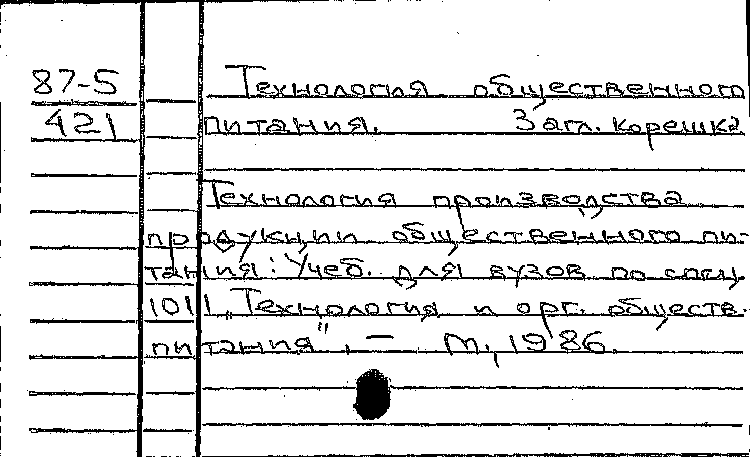 87-5 Технология общественного
421 питания. Загл. корешка
Технология производства
продукции общественного пи-
тания: Учеб. для вузов по спец.
1011 „Технология и орг. обществ.
питания". — М., 1986.